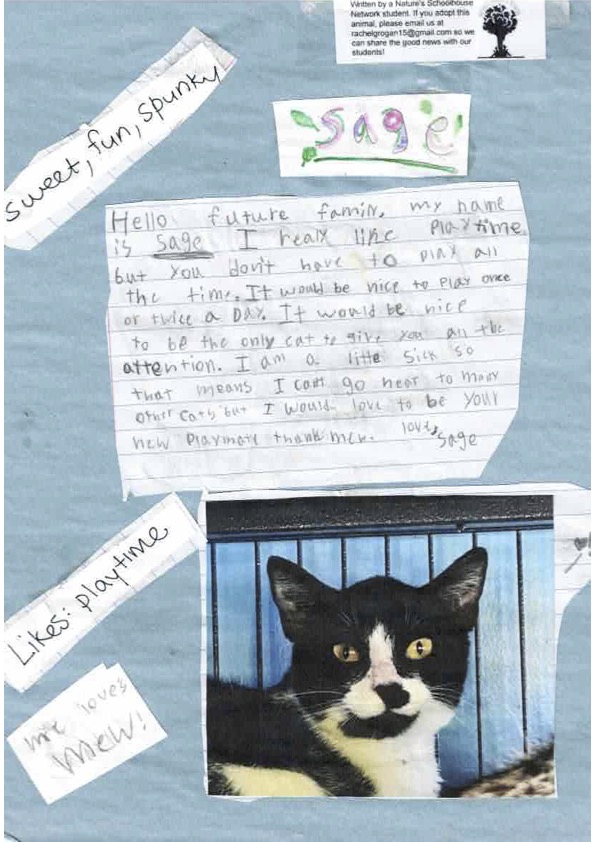 Written by a Nature's Schoolhouse
Network student. If you adopt this
animal, please email us at
rachelgrogan15@gmail.com so we
can share the good news with our
students!
sweet, fun, spunky
sage
Hello future famin, my name
is sage I realy like Playtime
but you don't have to play all
the time. It would be nice to Play once
or twice a Day. It would be nice
to be the only cat to give you all the
attention. I am a little sick so
that means I cant go near to many
other cats but I would love to be your
new Playmate thank mew. love,
sage
Likes: playtime
loves
mew!